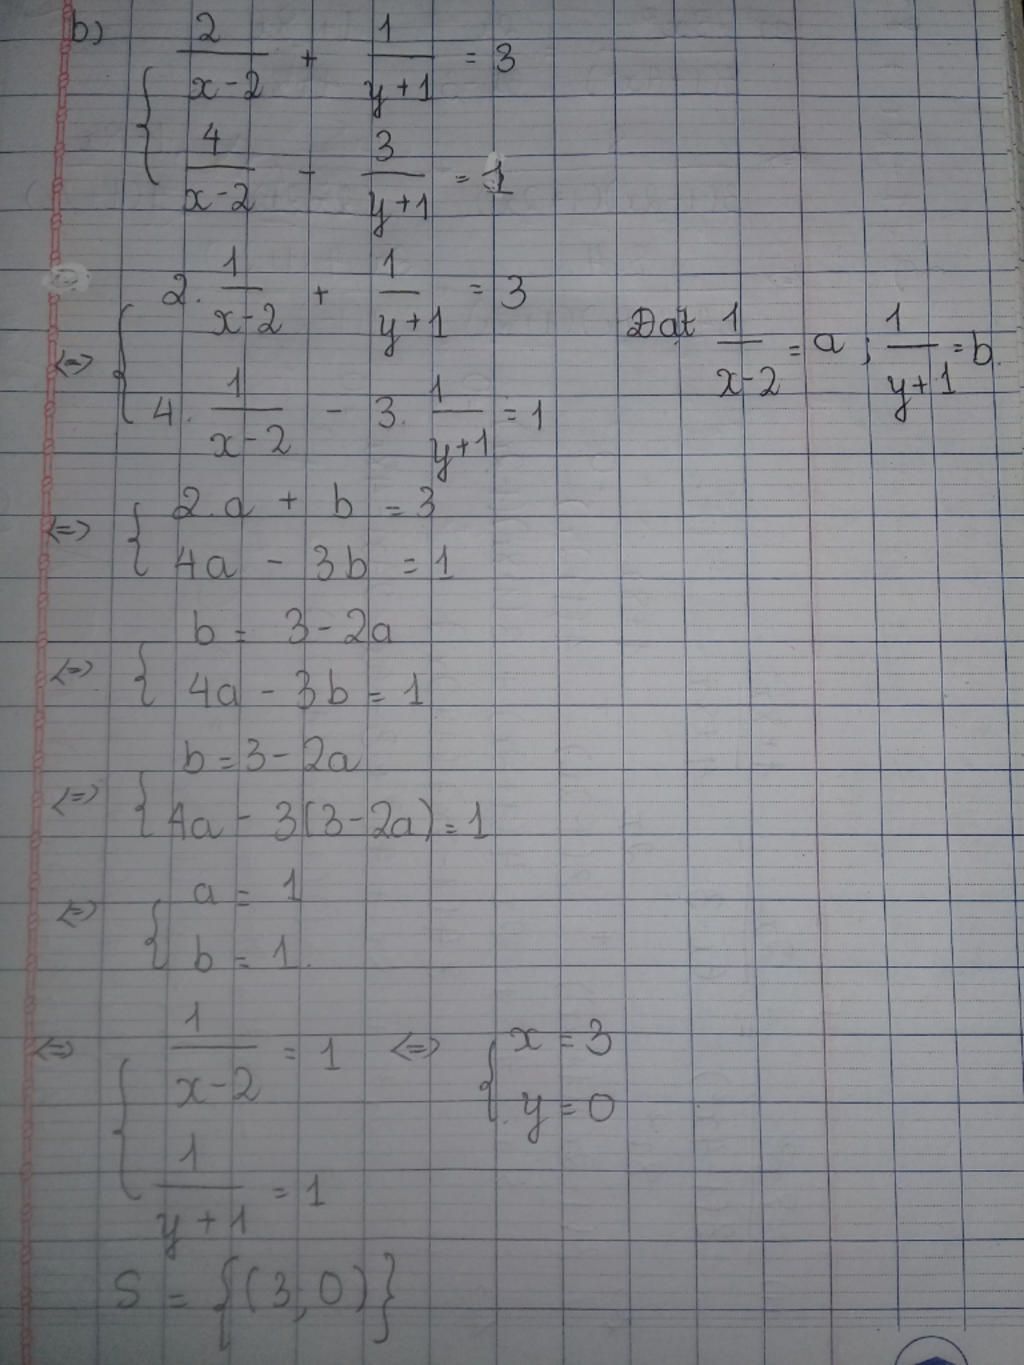 b) { 2/(x-2) + 1/(y+1) = 3
4/(x-2) - 3/(y+1) = 1
<=> { 2. 1/(x-2) + 1/(y+1) = 3 Đặt 1/(x-2) = a ; 1/(y+1) = b.
4. 1/(x-2) - 3. 1/(y+1) = 1
<=> { 2.a + b = 3
4a - 3b = 1
<=> { b = 3-2a
4a - 3b = 1
<=> { b = 3-2a
4a - 3(3-2a) = 1
<=> { a = 1
b = 1.
<=> { 1/(x-2) = 1 <=> { x = 3
1/(y+1) = 1 y = 0
S = {(3; 0)}